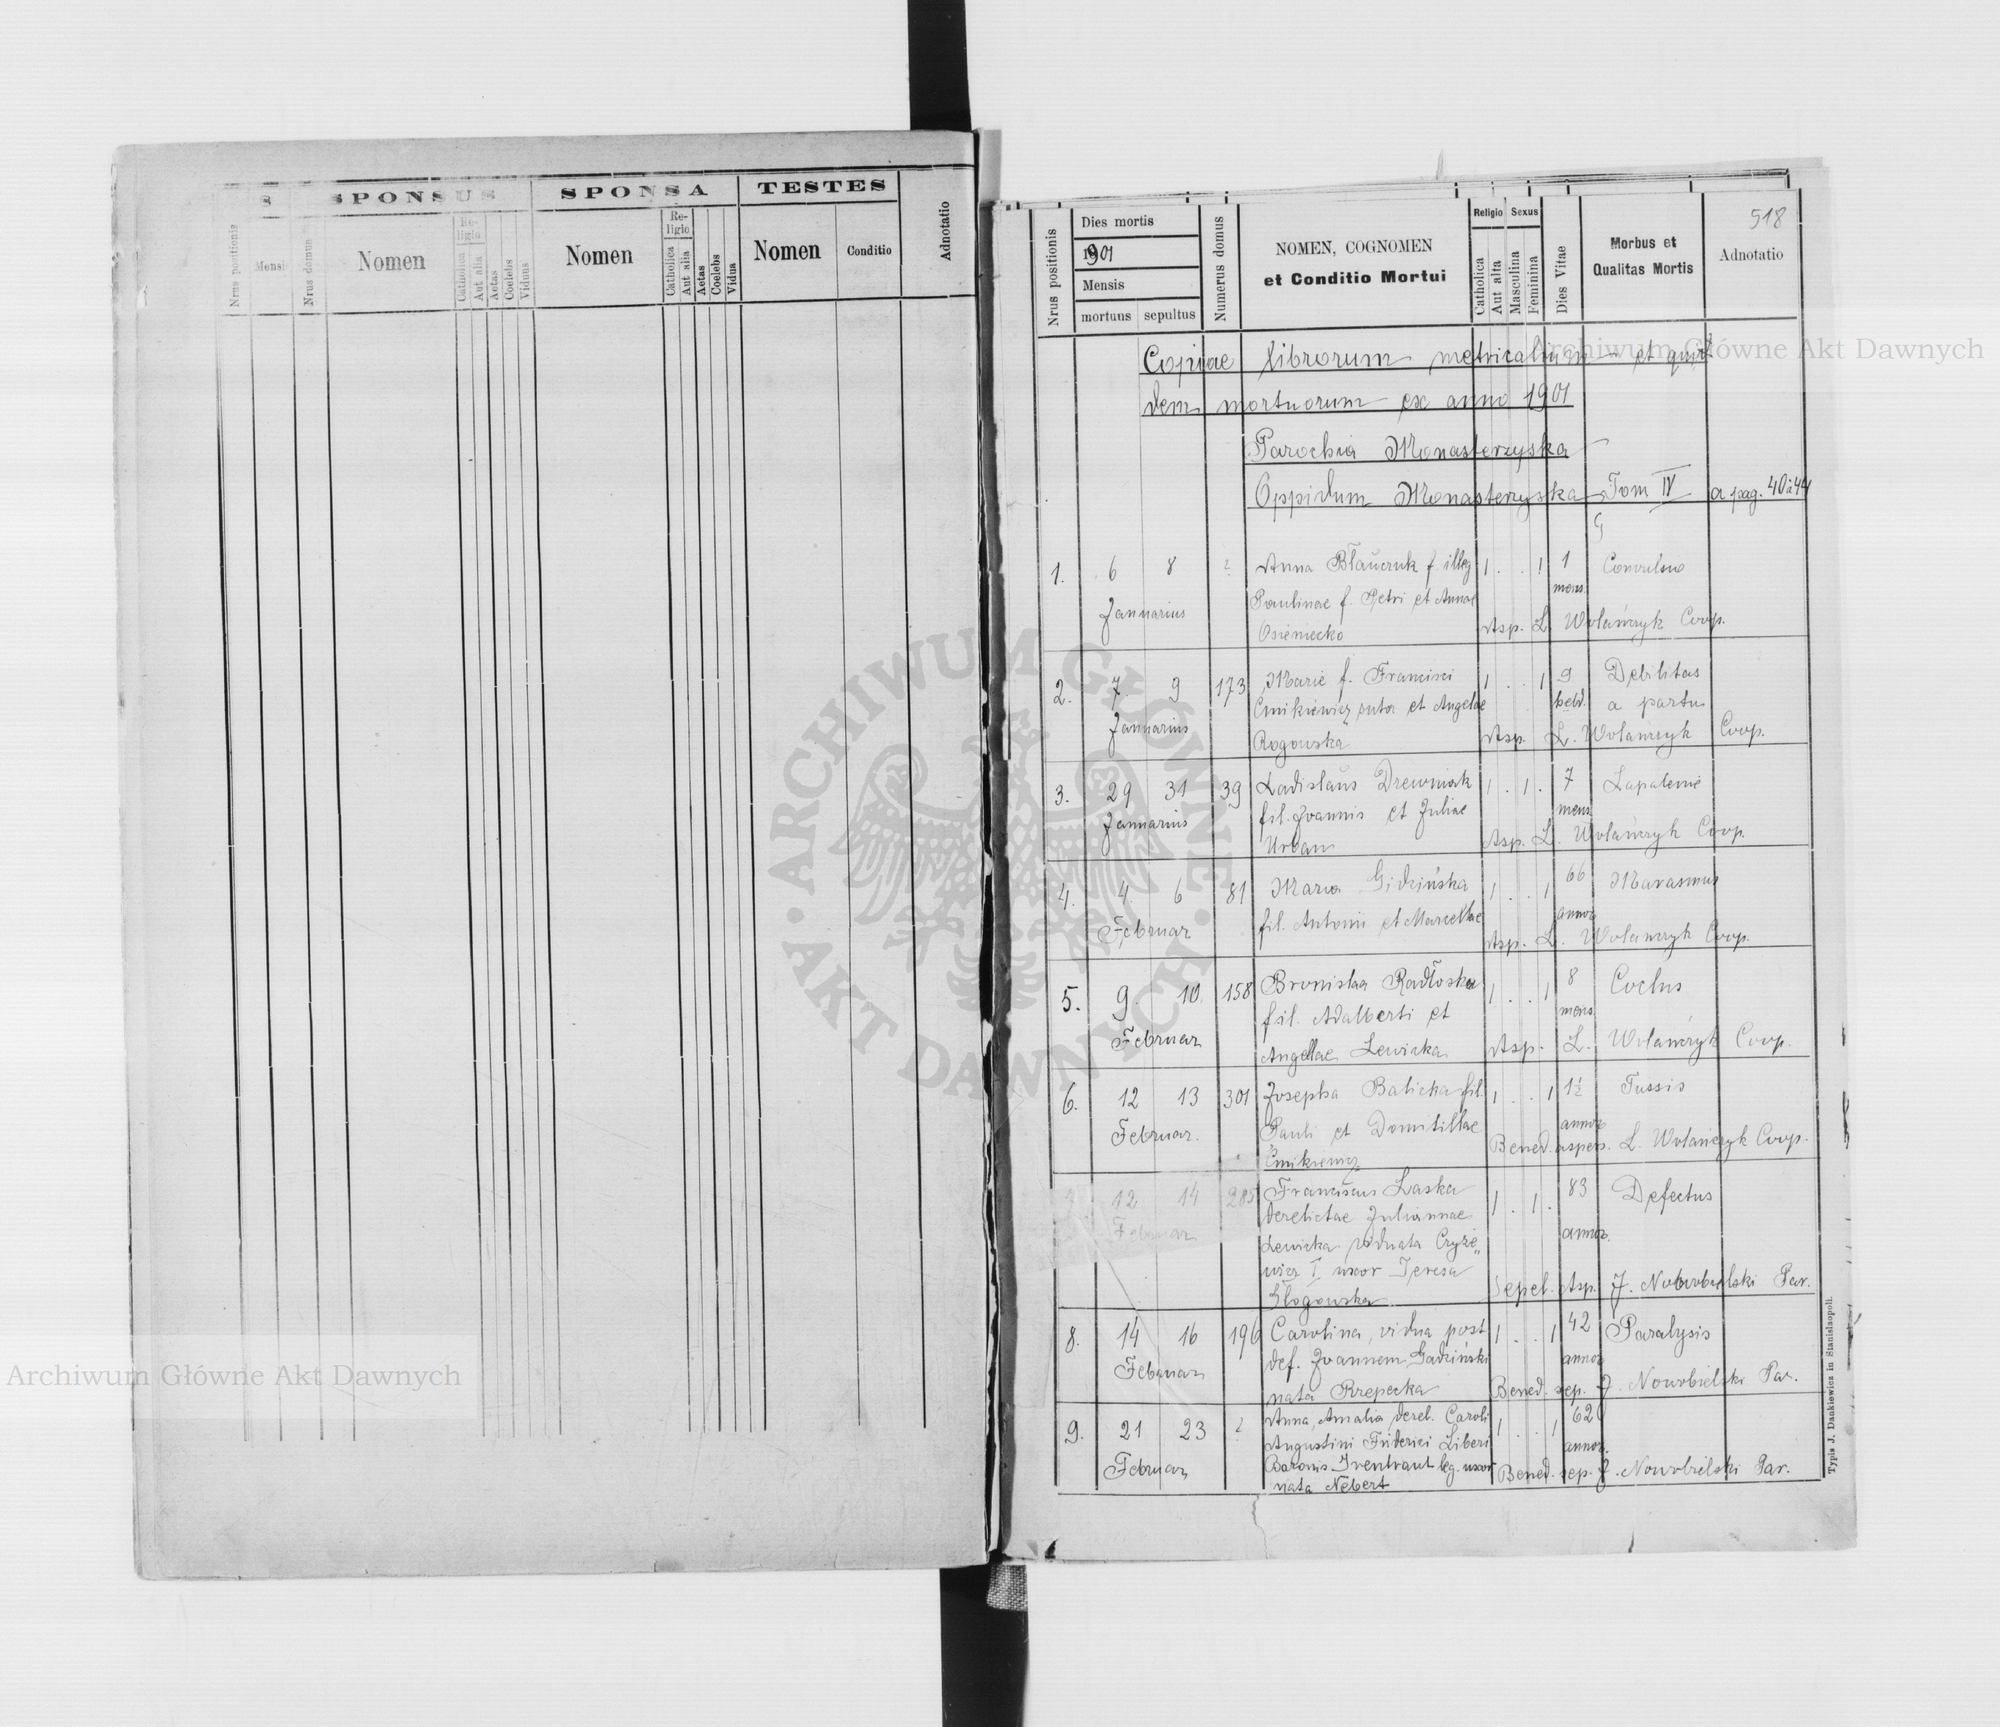 SPONSUS
SPONSA
TESTES
Nrus positionis
Mensi
Nrus domus
Nomen
Religio
Catholica
Aut alia
Aetas
Coelebs
Viduus
Nomen
Religio
Catholica
Aut alia
Aetas
Coelebs
Vidua
Nomen
Conditio
Adnotatio
518
Nrus positionis
Dies mortis
1901
Mensis
mortuus
sepultus
Numerus domus
NOMEN, COGNOMEN
et Conditio Mortui
Religio
Sexus
Catholica
Aut alta
Masculina
Feminina
Dies Vitae
Morbus et
Qualitas Mortis
Adnotatio
Copiae librorum metricalium et qui
dem mortuorum ex anno 1901
Parochia Monasterzyska
Oppidum Monasterzyska Tom IV a pag. 40 à 44
1. 6 8 ? Anna Błauczuk f. illeg 1 . . 1 1 Convulsio
Januarius Paulinae f. Petri et Annae mens.
Osieniecko Asp. L. Wolańczyk Coop.
2. 7 9 173 Marie f. Francisci 1 . . 1 9 Debilitas
Ćmikiewicz sutor et Angelae hebd. a partu
Januarius Rogowska Asp. L. Wolańczyk Coop.
3. 29 31 39 Ladislaus Drewniak 1 . 1 . 7
Januarius fil. Joannis et Juliae mens
Urban Asp. L. Wolańczyk Coop.
4. 4. 6 81 Maria Gidzińska 1 . . 1 66 Marasmus
Februar fil. Antonii et Marcellae annor
Asp. L. Wolańczyk Coop.
5. 9. 10 158 Bronislaa Radłoska 1 . . 1 8
fil. Adalberti et mens
Februar Angellae Lewicka Asp. L. Wolańczyk Coop.
6. 12 13 301 Josepha Balicka fil. 1 . . 1 1½ Tussis
Februar. Pauli et Domitillae annor
Ćmikiewicz Bened. aspers. L. Wolańczyk Coop.
7. 12 14 285 Franciscus Laska 1 . 1 . 83 Defectus
Februar derelictae Juliannae
Lewicka viduata annor.
wicz I uxor Teresa
Głogowska Sepel. Asp. J. Nowobielski Par.
8. 14 16 196 Carolina, vidua post 1 . . 1 42 Paralysis
Februar def. Joannem Gadziński annor
nata Rzepecka Bened. sep. J. Nowobielski Par.
9. 21 23 ? Anna Amalia derel. Caroli 1 . . 1 62
Augustini Friderici Liberi annor.
Februar Baronis Irentraut leg. uxor Bened. sep. J. Nowobielski Par.
nata Nebert
Typis J. Dankiewicz in Stanislaopoli.
Archiwum Główne Akt Dawnych
Archiwum Główne Akt Dawnych
ARCHIWUM GŁÓWNE · AKT DAWNYCH ·